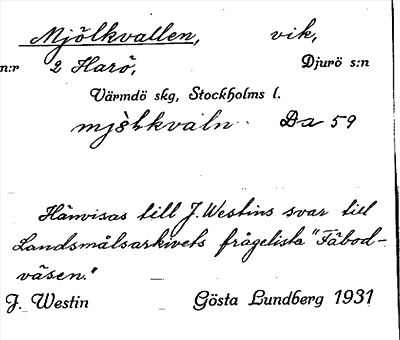 Mjölkvallen, vik,
n:r 2 Harö, Djurö s:n
Värmdö skg, Stockholms l.
mjö̀lkvàln Da 59
Hänvisas till J. Westins svar till
Landsmålsarkivets frågelista "Fäbod-
väsen."
J. Westin Gösta Lundberg 1931